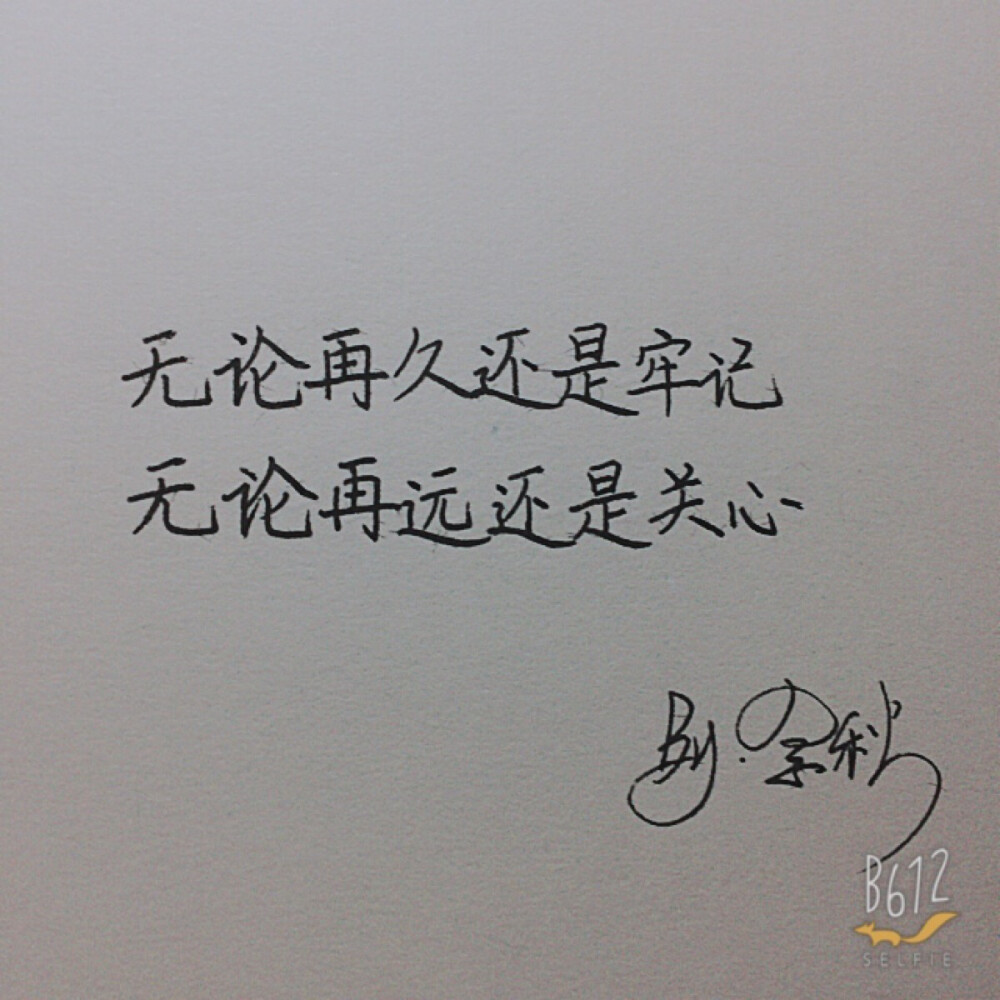 无论再久还是牢记
无论再远还是关心
By.余秋
B612
SELFIE